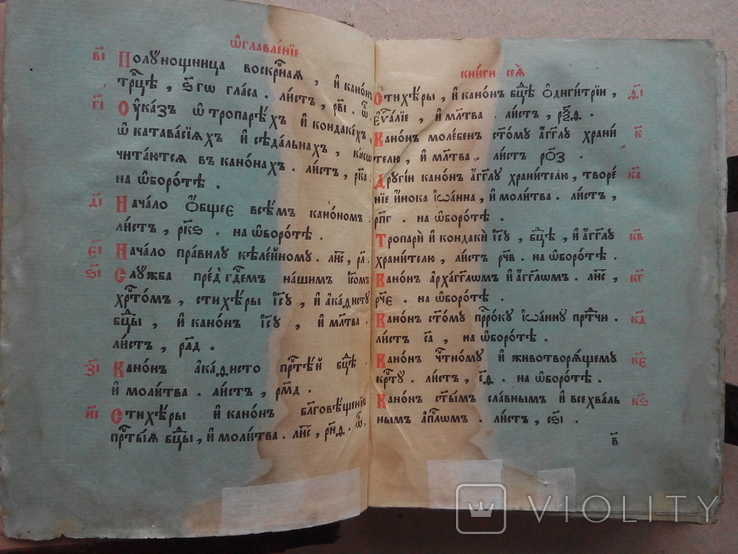 ѡ҆главле́нїе
в҃і Полꙋ́нощница воскр҇ная , и҆ кано́нъ
тр҇цѣ ,
г҃і Оу҆ка́зъ ѡ҆ тропарѣ́хъ и҆ кондака́хъ ,
ѡ҆ катава́сїѧхъ и҆ сѣда́льнахъ , ка́кѡ
чита́ются в кано́нахъ . ли́стъ , рк҃а
на ѡ҆боро́тѣ .
д҃і Нача́ло о҆́бщее всѣ́мъ кано́номъ
ли́стъ , рк҃ѕ . на ѡ҆боро́тѣ .
є҃і Нача́ло пра́вилꙋ кѣле́йномꙋ . ли́с ,
ѕ҃і Слꙋ́жба пред гд҇емъ на́шимъ і҆с҃омъ
хр҇то́мъ , стихѣ́ры і҆с҃ꙋ , и҆ а҆ка́ѳистꙋ
бц҃ы , и҆ кано́нъ і҆с҃ꙋ , и҆ мл҃тва .
ли́стъ , рл҃д .
з҃і Кано́нъ а҆ка́ѳисто пр҇тѣ́й бц҃ѣ .
и҆ моли́тва . ли́стъ , рм҃д .
и҃і Стихѣ́ры и҆ кано́нъ бл҃говѣ́щенїю
пр҇ты́ѧ бц҃ы , и҆ моли́тва . ли́с ,
кни́ги сеѧ̀
Стихѣ́ры , и҆ кано́нъ бц҃ѣ О҆диги́трїи ,
є҆ѵⷢ҇алїе , и҆ мл҃тва . ли́стъ ,
к҃ Кано́нъ моле́бенъ ст҃о́мꙋ а҆́гг҃лꙋ храни́
телю , и҆ мл҃тва . ли́стъ ро҃з .
к҃а Дрꙋгі́й кано́нъ а҆́гг҃лꙋ храни́телю , творе́
нїе и҆́нока і҆ѡа́нна , и҆ моли́тва . ли́стъ ,
рп҃г . на ѡ҆боро́тѣ .
к҃в Тропарѝ и҆ кондакѝ і҆с҃ꙋ , бц҃ѣ , и҆ а҆́гг҃лꙋ
храни́телю , ли́стъ рч҃в . на ѡ҆боро́тѣ .
к҃г Кано́нъ а҆рха́гг҃лѡмъ и҆ а҆́гг҃лѡмъ . ли́с ,
рч҃є . на ѡ҆боро́тѣ .
к҃д Кано́нъ ст҃о́мꙋ прⷪ҇ро́кꙋ і҆ѡа́ннꙋ пр҃тчи .
ли́стъ с҃а , на ѡ҆боро́тѣ .
к҃є Кано́нъ чⷭ҇тно́мꙋ и҆ животворѧ́щемꙋ
кр҇тꙋ̀ . ли́стъ , на ѡ҆боро́тѣ .
к҃ѕ Кано́нъ ст҃ы́мъ сла́внымъ и҆ всехва́ль
нымъ а҆пⷭ҇лѡмъ . ли́стъ , сѕ҃і .
в҃
VIOLITY